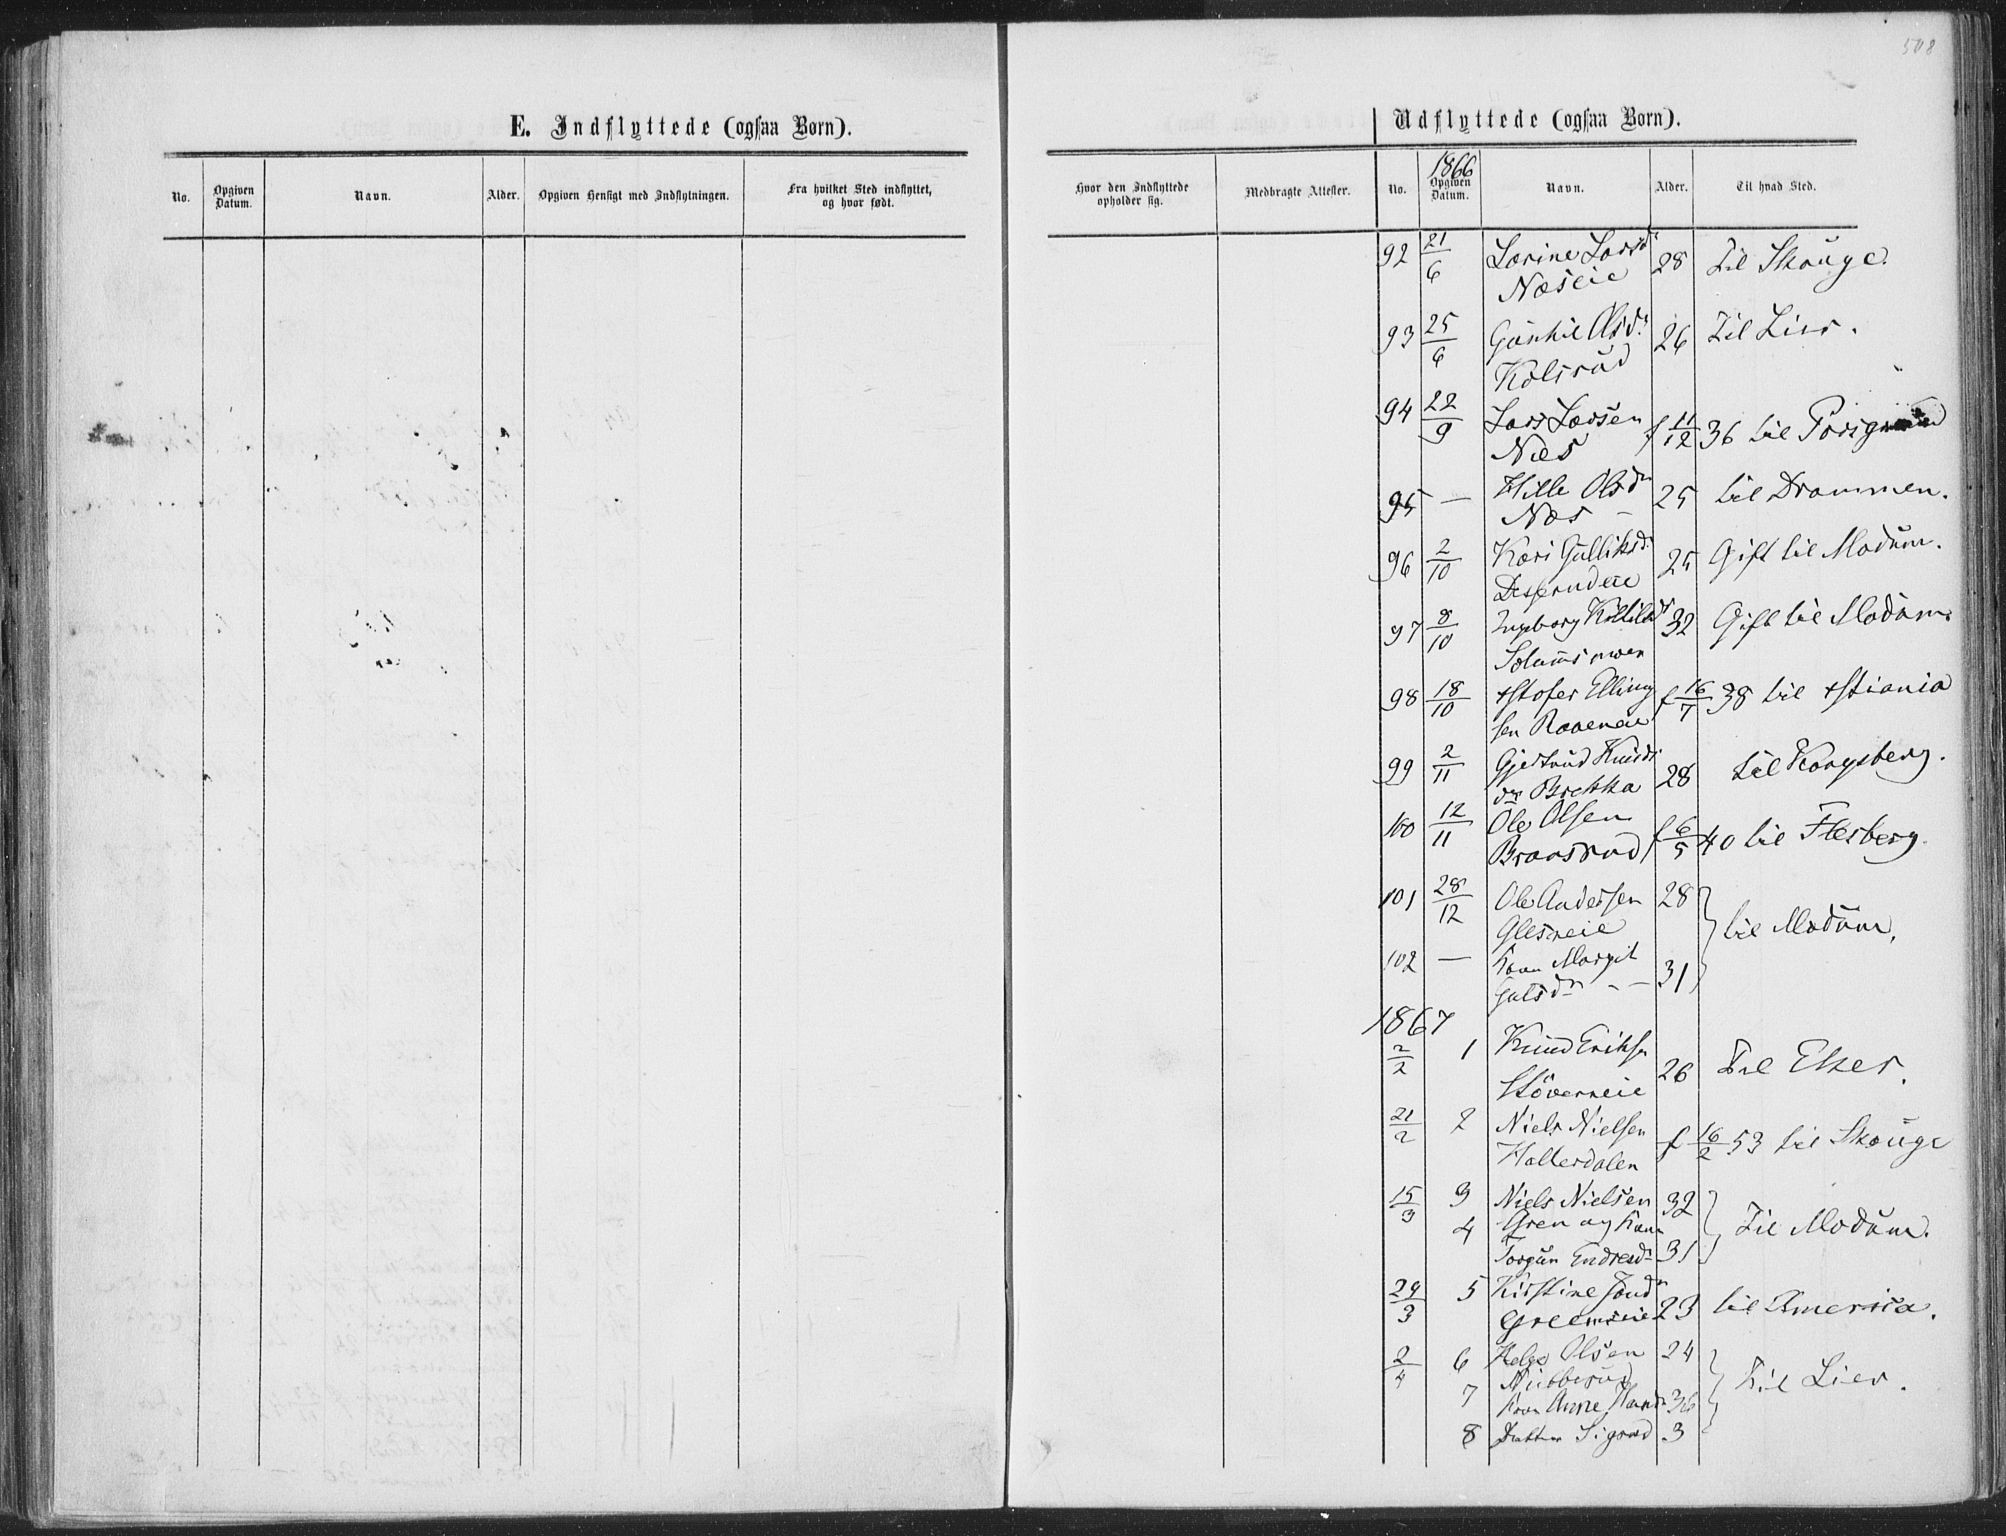 508
E. Indflyttede (ogsaa Børn).
Udflyttede (ogsaa Børn).
No.
Opgiven Datum.
Navn.
Alder.
Opgiven Hensigt med Indflytningen.
Fra hvilket Sted indflyttet, og hvor født.
Hvor den Indflyttede opholder sig.
Medbragte Attester.
No.
1866
Opgiven Datum.
Navn.
Alder.
Til hvad Sted.
92 21/6 Larine Larsd. 28 Til Skouge.
Næseie
93 25/6 Gunhil Olsd. 26 Til Lier.
Kolsrud
94 22/9 Lars Larsen f 11/12 36 til Porsgrund
Næs
95 — Hille Olsdr 25 til Drammen.
Næs —
96 2/10 Kari Gulliksd. 25 Gift til Modum.
97 8/10 Ingborg Kittilsd 32 Gift til Modum.
Solumsmoen
98 18/10 xstofer Elling f 16/7 38 til xstiania
sen
99 2/11 Gjertrud Knuds 28 til Kongsberg.
dr Brekka
100 12/11 Ole Olsen f 6/5 40 til Flesberg.
101 28/12 Ole Andersen 28 til Modum.
Glesneie
102 — Kone Margit 31
1867
2/2 1 Knud Eriksn 26 Til Eker.
Støverneie
21/2 2 Niels Nielsen f 16/2 53 til Skouge
Hollerdalen
15/3 3 Niels Nielsen 32 Til Modum.
4 Gren og Kone
Torgun Endresdr 31
29/3 5 Kirstine 23 til America.
2/4 6 Helge Olsen 24 Til Lier.
Nubberud
7 Kone Anne 36
8 Datter Sigrid 3